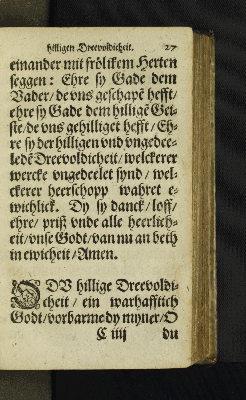 hilligen Dreevoldicheit. 27
einander mit frölikem Herten
seggen: Ehre sy Gade dem
Vader / de vns geschapē hefft /
ehre sy Gade dem hilligē Gei-
ste / de vns gehilliget hefft / Eh-
re sy der hilligen vnd vngedee-
ledē Dreevoldicheit / welckerer
wercke vngedeelet synd / wel-
ckerer heerschopp wahret e-
wichlick. Dy sy danck / loff /
ehre / priß vnde alle heerlich-
eit / vnse Godt / van nu an beth
in ewicheit / Amen.
O DV hillige Dreevoldi-
cheit / ein warhafftich
Godt / vorbarme dy myner / O
C iiij du